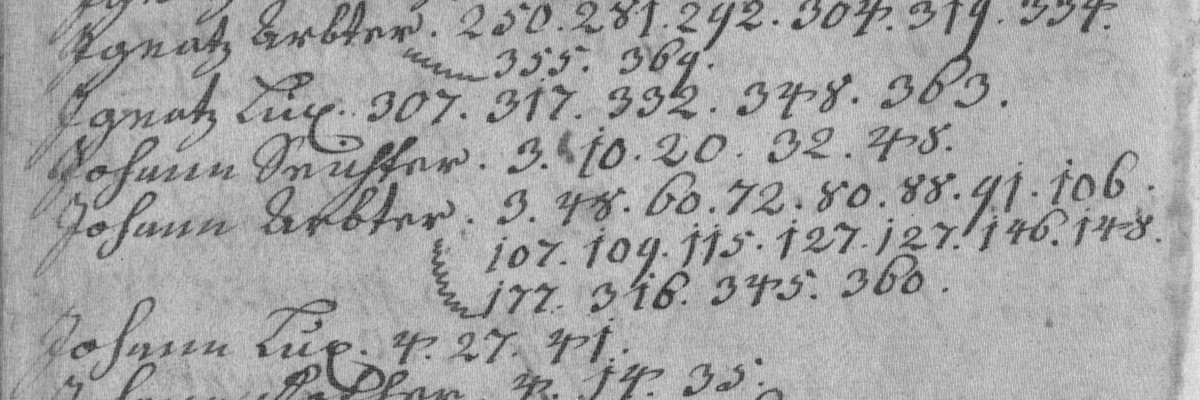 Ignatz Arbter. 250. 281. 292. 304. 319. 334.
355. 369.
Ignatz Lux. 307. 317. 332. 348. 363.
Johann Seichter. 3. 10. 20. 32. 48.
Johann Arbter. 3. 48. 60. 72. 80. 88. 91. 106.
107. 109. 115. 127. 127. 146. 148.
177. 316. 345. 360.
Johann Lux. 4. 27. 41.
Johann 4. 14. 35.